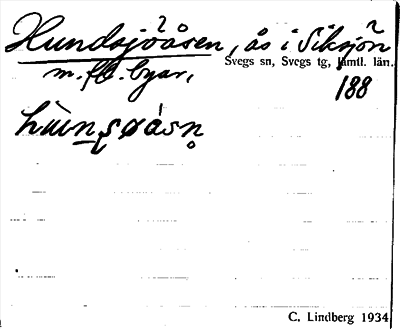 Hundsjöåsen, ås i Siksjön
Svegs sn, Svegs tg, Jämtl. län.
m. fl. byar,
188
C. Lindberg 1934